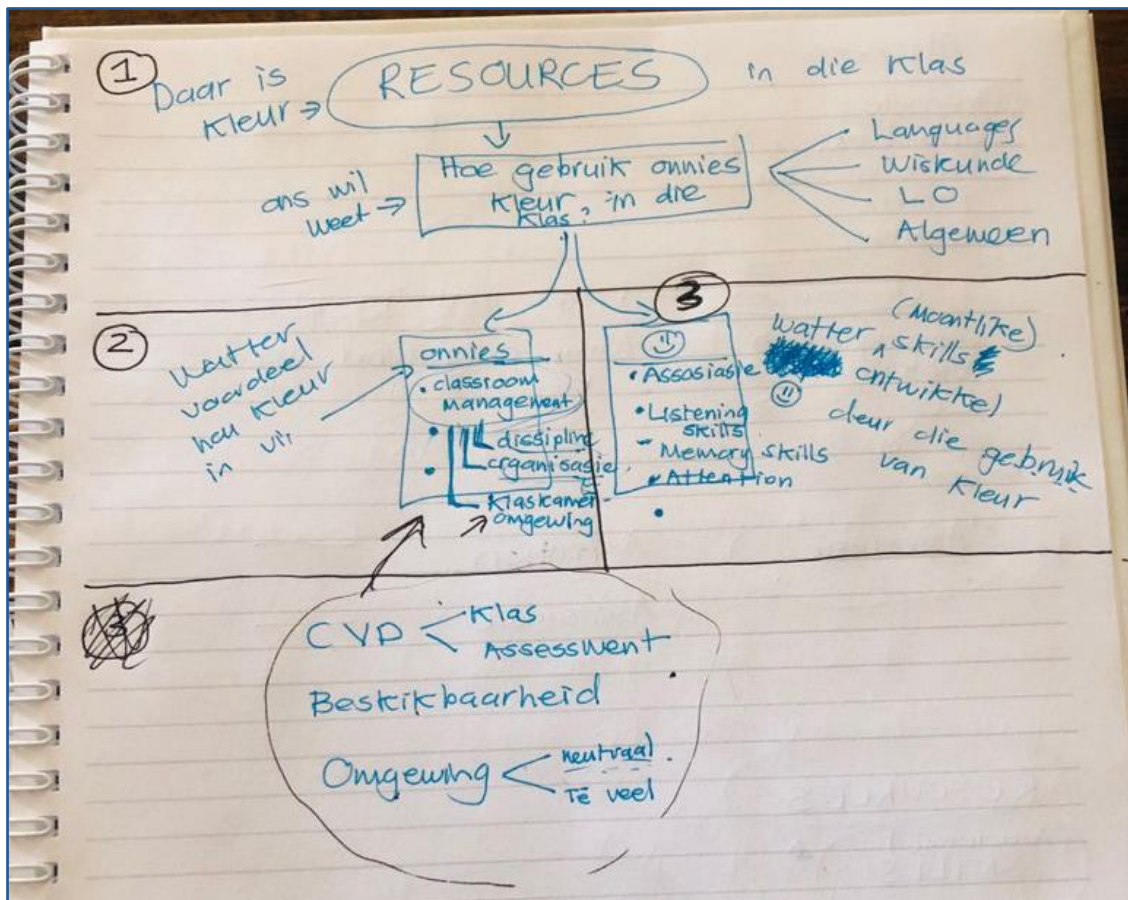 1
Daar is
Kleur → RESOURCES in die Klas
ons wil
weet →
Hoe gebruik onnies
Kleur, in die
Klas?
Languages
Wiskunde
LO
Algemeen
2
Watter
voordeel
hou Kleur
in vir
onnies
• classroom
management
dissipline
organisasie
Klaskamer
omgewing
3
• Assosiasie
• Listening
skills
- Memory skills
• Attention
watter (Moontlike)
^ skills
ontwikkel
deur die gebruik
van Kleur
3
CVD
Klas
Assessment
Beskikbaarheid
Omgewing
neutraal
Te veel